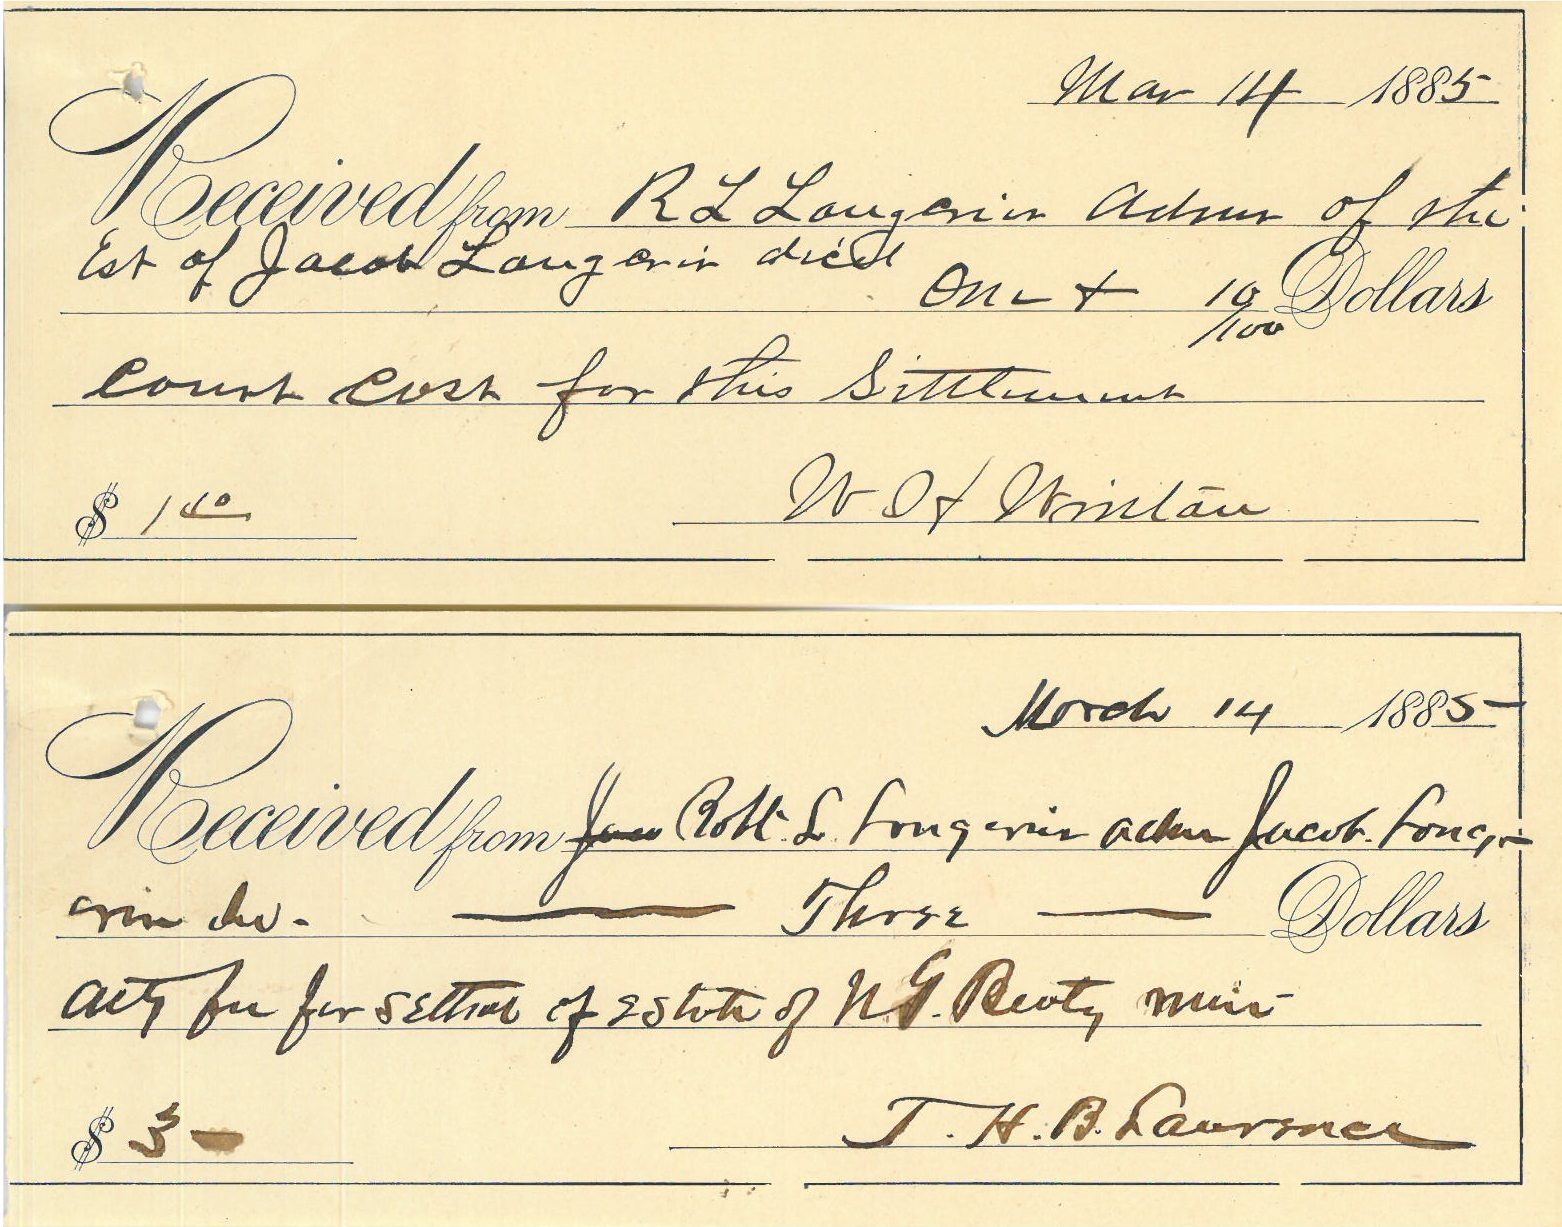 Mar 14 1885
Received from R L Laugerin Admr of the
Est of Jacob Laugerin dic'd
One + 10/100 Dollars
Court Cost for this Settlement
$ 1 10 W H Winlau
March 14 1885
Received from Robt. L. Longerin adm Jacob. Long-
erin de. Three Dollars
Atty fee for settmt of Estate of N G. Beaty minr
$ 3 — T. H. B. Lawrence